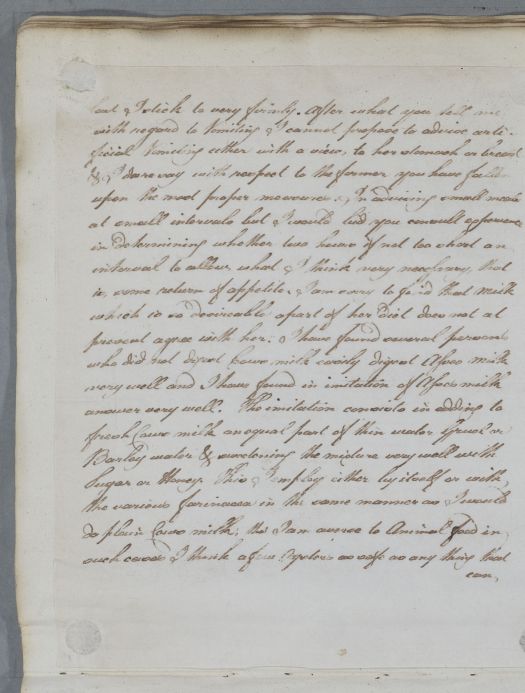 but I stick to very firmly. After what you tell me
with regard to Vomiting I cannot propose to advise arti-
ficial Vomiting either with a view, to her stomach or breast
& I dare say with respect to the former you have fallen
upon the most proper measures, In advising small meals
at small intervals but I would bid you consult experience
in determining whether two hours if not too short an
interval to allow, what I think very necessary, that
is, some return of appetite. I am sorry to find that milk
which is so desireable apart of her Diet does not at
present agree with her. I have found several persons
who did not digest Cows milk easily digest Asses milk
very well and I have found in imitation of Asses milk
answer very well. The imitation consists in adding to
fresh Cows milk an equal part of thin water Gruel or
Barley water & sweetening the mixture very well with
Sugar or Honey. This I employ either by itself or with
the various farinacea in the same manner as I would
do plain Cows milk, tho I am averse to Animal food in
such cases I think a few Oysters as safe as any thing that
can,